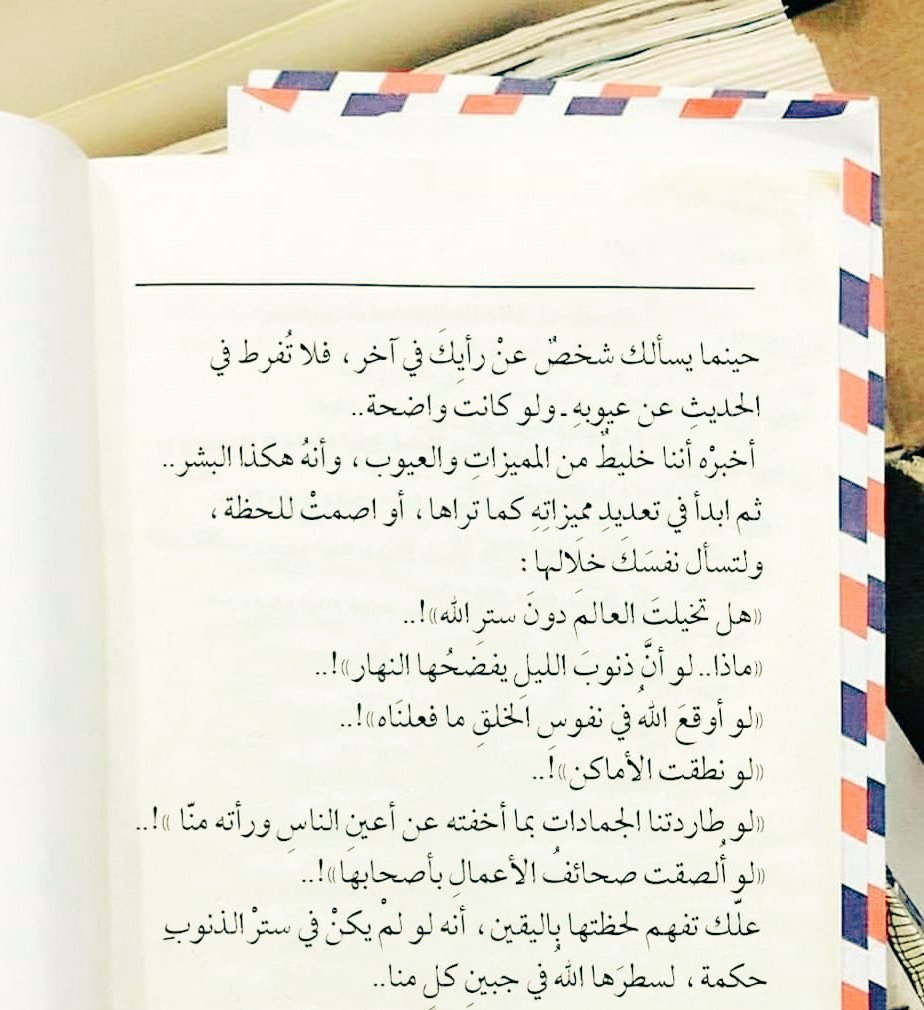 حينما يسألك شخصٌ عنْ رأيِكَ في آخر ، فلا تُفرط في
الحديثِ عن عيوبهِ ـ ولو كانت واضحة..
أخبرْه أننا خليطٌ من المميزاتِ والعيوب ، وأنهُ هكذا البشر..
ثم ابدأ في تعديدِ مميزاتِهِ كما تراها ، أو اصمتْ للحظة ،
ولتسأل نفسَكَ خلالها :
«هل تخيلتَ العالمَ دونَ سترِ الله»!..
«ماذا.. لو أنَّ ذنوبَ الليلِ يفضحُها النهار»!..
«لو أوقعَ اللهُ في نفوسِ الخلقِ ما فعلنَاه»!..
«لو نطقت الأماكن»!..
«لو طاردتنا الجمادات بما أخفته عن أعينِ الناسِ ورأته منّا »!..
«لو أُلصقت صحائفُ الأعمالِ بأصحابها»!..
علّك تفهم لحظتها باليقين ، أنه لو لمْ يكنْ في سترْ الذنوبِ
حكمة ، لسطرَها اللهُ في جبينِ كلٍ منا..